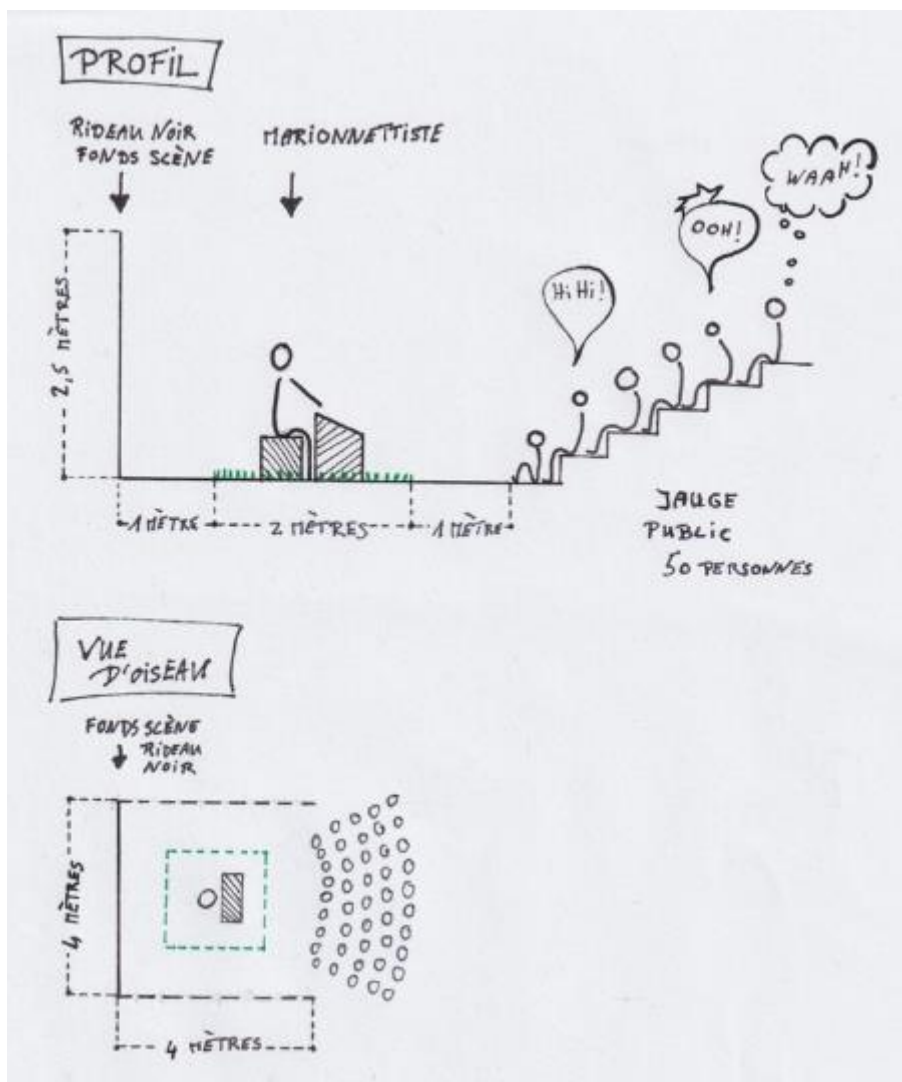 PROFIL
RIDEAU NOIR
FONDS SCÈNE
MARIONNETTISTE
WAAH!
OOH!
HiHi!
2,5 MÈTRES
1 MÈTRE
2 MÈTRES
1 MÈTRE
JAUGE
PUBLIC
50 PERSONNES
VUE
D'OISEAU
FONDS SCÈNE
RIDEAU
NOIR
4 MÈTRES
4 MÈTRES